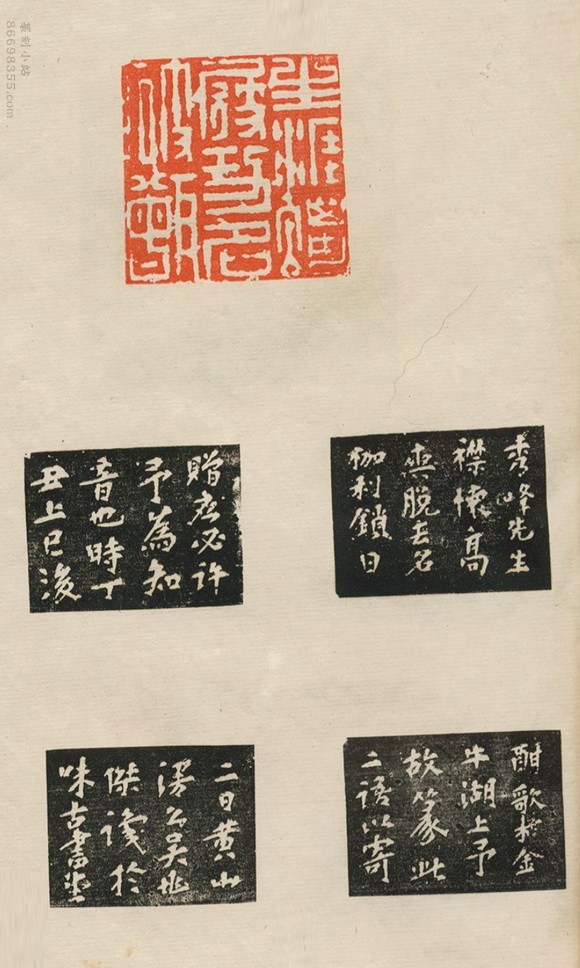 篆刻小站
86698355.com
秀峰先生
襟懷高
爽脫去名
枷利鎖日
酣歌於金
牛湖上予
故篆此
二語以寄
贈應必許
予為知
音也時丁
丑上巳後
二日黃山
漫公吳兆
傑識於
味古書堂